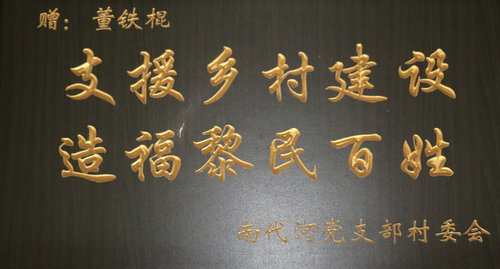 赠：董铁棍
支援乡村建设
造福黎民百姓
南代河党支部村委会